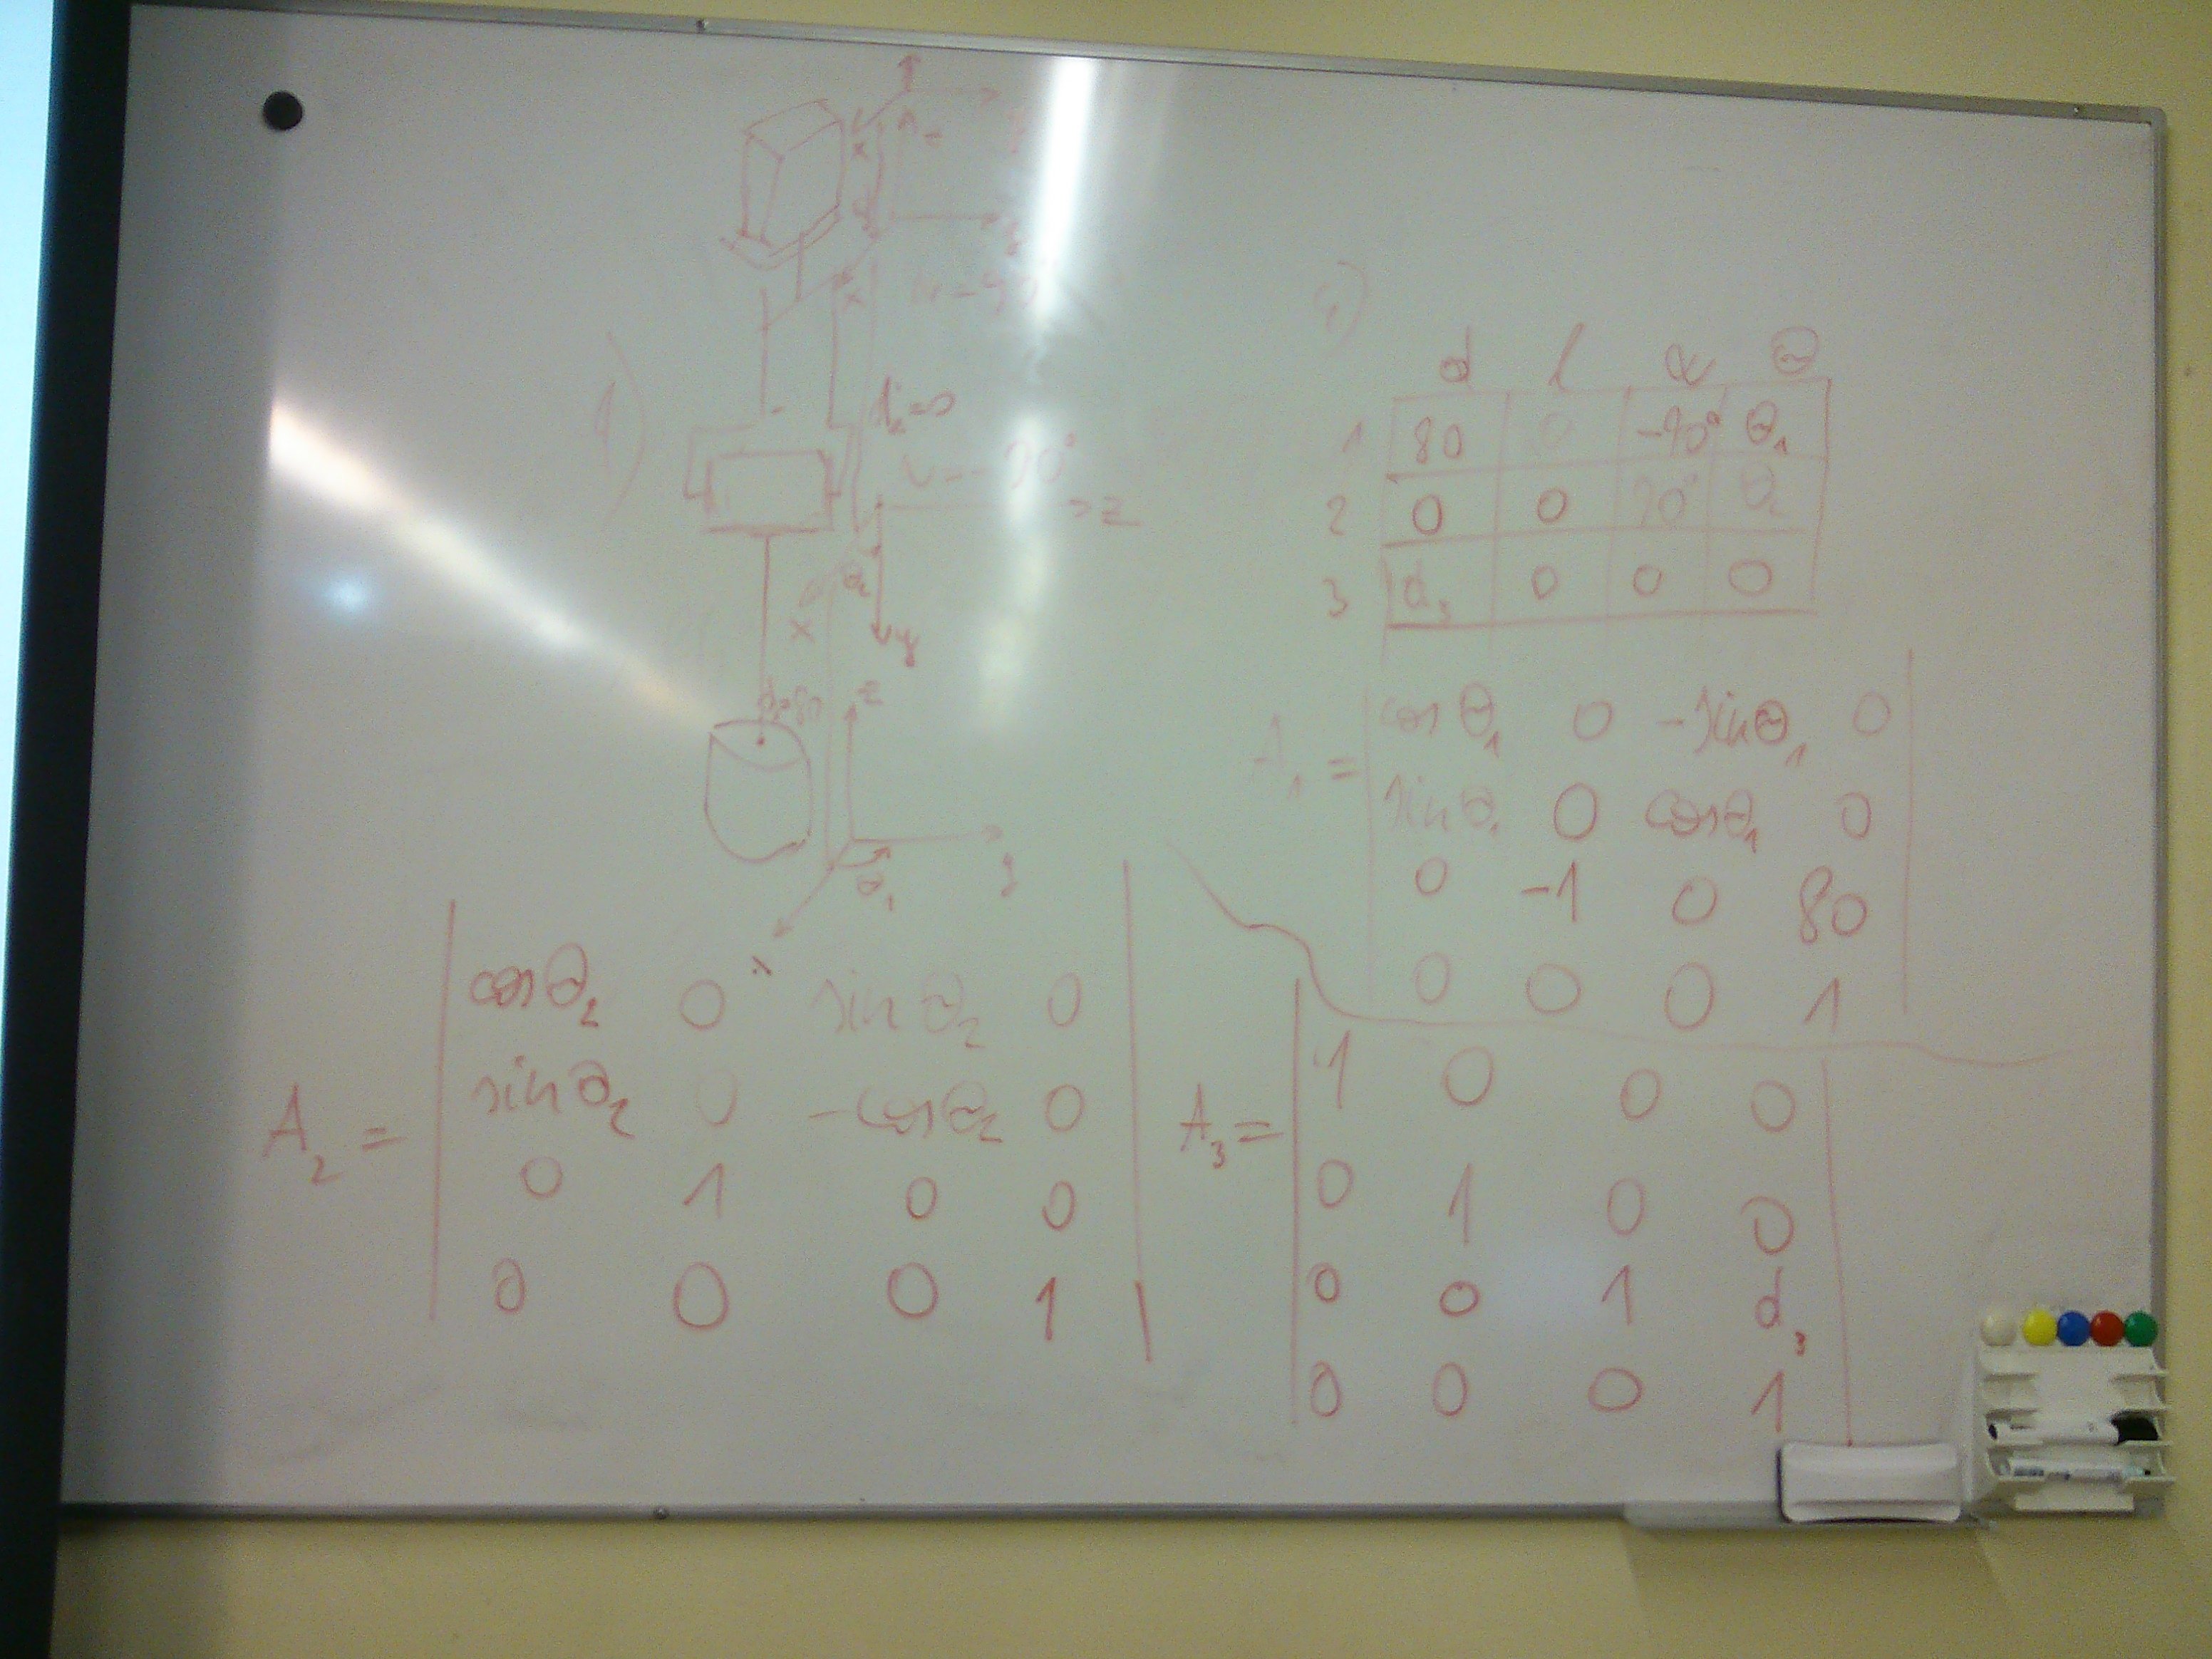 1)
l₂=0
α=-90°
z
θ₂
x
y
d₁=80
z
y
θ₁
x
2)
d l α θ
1 80 0 -90° θ₁
2 0 0 90° θ₂
3 d₃ 0 0 0
A₁ =
cos θ₁ 0 -sin θ₁ 0
sin θ₁ 0 cos θ₁ 0
0 -1 0 80
0 0 0 1
A₂ =
cos θ₂ 0 sin θ₂ 0
sin θ₂ 0 -cos θ₂ 0
0 1 0 0
0 0 0 1
A₃ =
1 0 0 0
0 1 0 0
0 0 1 d₃
0 0 0 1